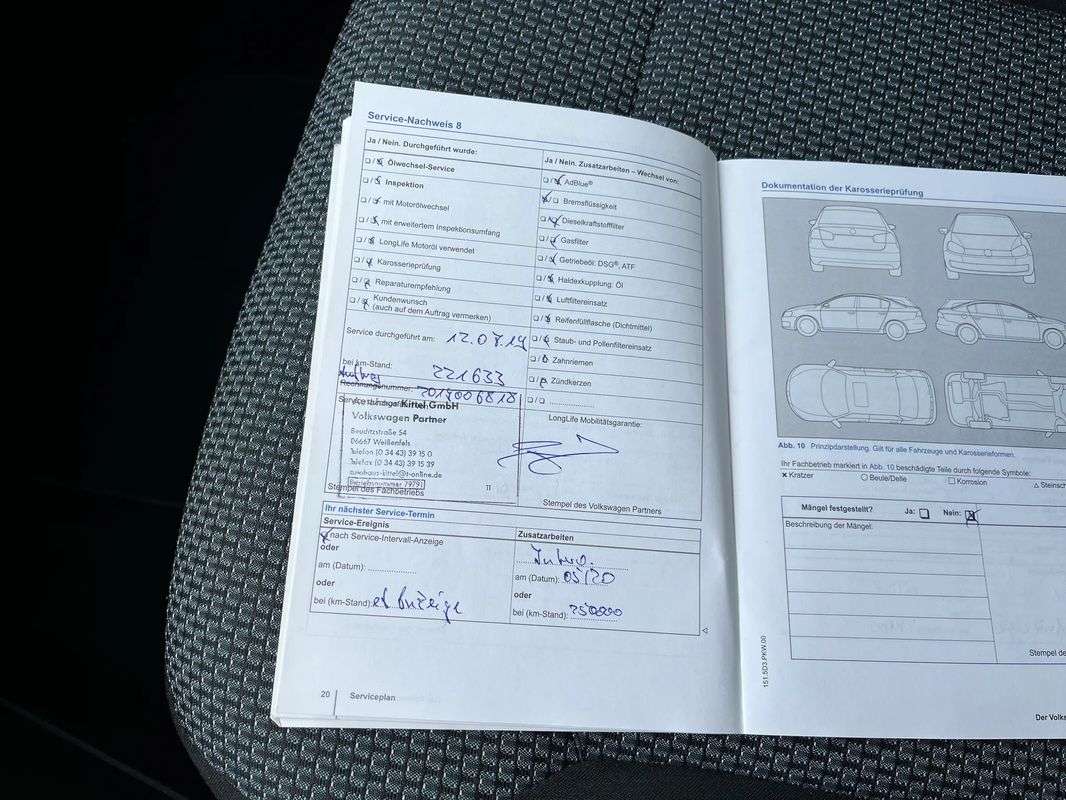 Service-Nachweis 8
Ja / Nein. Durchgeführt wurde:
☐ / ☒ Ölwechsel-Service
☐ / ☒ Inspektion
☐ / ☒ mit Motorölwechsel
☐ / ☒ mit erweitertem Inspektionsumfang
☐ / ☒ LongLife Motoröl verwendet
☐ / ☒ Karosserieprüfung
☐ / ☒ Reparaturempfehlung
☐ / ☒ Kundenwunsch
(auch auf dem Auftrag vermerken)
Service durchgeführt am: 12.07.19
bei km-Stand: 221633
Auftrag
Rechnungsnummer: 2019006818
Kittel GmbH
Volkswagen Partner
Beuditzstraße 54
06667 Weißenfels
Telefon (0 34 43) 39 15 0
Telefax (0 34 43) 39 15 39
autohaus-kittel@t-online.de
Betriebsnummer 79791
11
Stempel des Fachbetriebs
Ja / Nein. Zusatzarbeiten – Wechsel von:
☐ / ☒ AdBlue®
☒ / ☐ Bremsflüssigkeit
☐ / ☒ Dieselkraftstofffilter
☐ / ☒ Gasfilter
☐ / ☒ Getriebeöl: DSG®, ATF
☐ / ☒ Haldexkupplung: Öl
☐ / ☒ Luftfiltereinsatz
☐ / ☒ Reifenfüllflasche (Dichtmittel)
☐ / ☒ Staub- und Pollenfiltereinsatz
☐ / ☒ Zahnriemen
☐ / ☒ Zündkerzen
☐ / ☐
LongLife Mobilitätsgarantie:
Stempel des Volkswagen Partners
Ihr nächster Service-Termin
Service-Ereignis
☒ nach Service-Intervall-Anzeige
oder
am (Datum):
oder
bei (km-Stand): Anzeige
Zusatzarbeiten
am (Datum): 05/20
oder
bei (km-Stand): 250000
20 Serviceplan
Dokumentation der Karosserieprüfung
Abb. 10 Prinzipdarstellung. Gilt für alle Fahrzeuge und Karosserieformen.
Ihr Fachbetrieb markiert in Abb. 10 beschädigte Teile durch folgende Symbole:
× Kratzer ○ Beule/Delle □ Korrosion △ Steinsch
Mängel festgestellt? Ja: ☐ Nein: ☒
Beschreibung der Mängel:
Stempel de
151.5D3.PKW.00
Der Volks